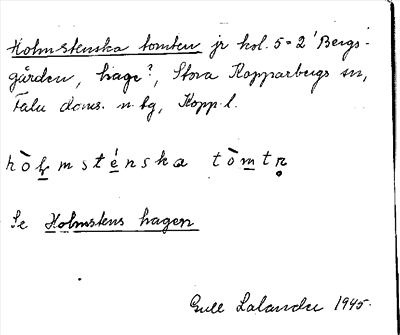 Holmstenska tomten jr kol. 5=2 'Bergs-
gården, hage?, Stora Kopparbergs sn,
Falu doms. n. tg, Kopp. l.
hòl̥msténska tòmtn̥
Se Holmstens hagen
Gull Lalander 1945.